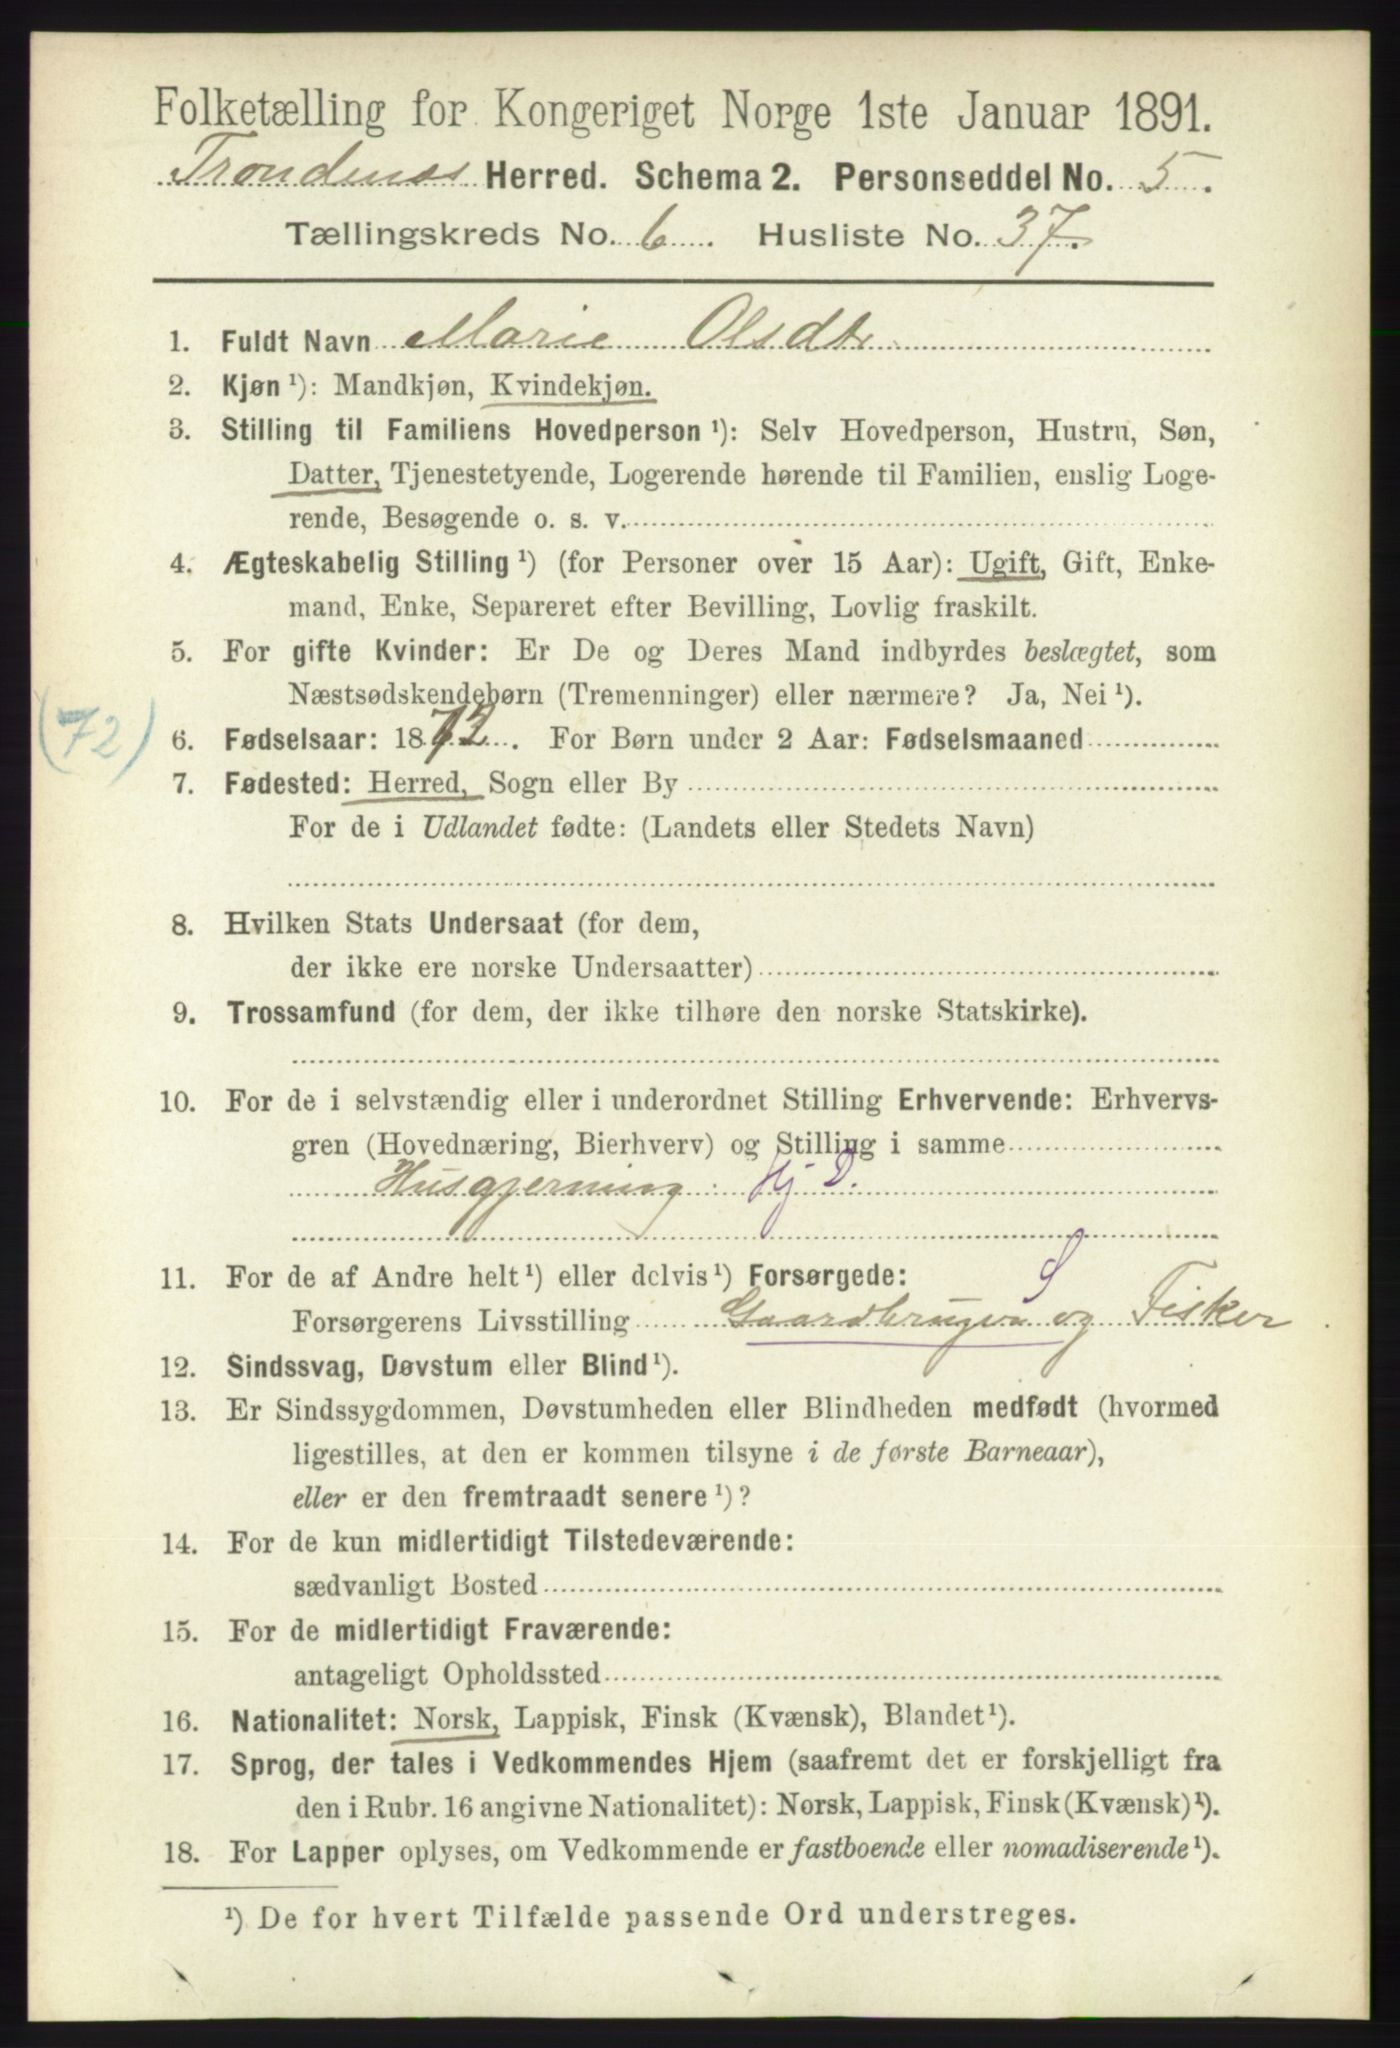 Folketælling for Kongeriget Norge 1ste Januar 1891.
Trondenæs Herred. Schema 2. Personseddel No. 5.
Tællingskreds No. 6. Husliste No. 37.
1. Fuldt Navn Marie Olsdtr
2. Kjøn ¹): Mandkjøn, Kvindekjøn.
3. Stilling til Familiens Hovedperson ¹): Selv Hovedperson, Hustru, Søn,
Datter, Tjenestetyende, Logerende hørende til Familien, enslig Loge-
rende, Besøgende o. s. v.
4. Ægteskabelig Stilling ¹) (for Personer over 15 Aar): Ugift, Gift, Enke-
mand, Enke, Separeret efter Bevilling, Lovlig fraskilt.
5. For gifte Kvinder: Er De og Deres Mand indbyrdes beslægtet, som
Næstsødskendebørn (Tremenninger) eller nærmere? Ja, Nei ¹).
(72)
6. Fødselsaar: 1872. For Børn under 2 Aar: Fødselsmaaned
7. Fødested: Herred, Sogn eller By
For de i Udlandet fødte: (Landets eller Stedets Navn)
8. Hvilken Stats Undersaat (for dem,
der ikke ere norske Undersaatter)
9. Trossamfund (for dem, der ikke tilhøre den norske Statskirke).
10. For de i selvstændig eller i underordnet Stilling Erhvervende: Erhvervs-
gren (Hovednæring, Bierhverv) og Stilling i samme
Husgjerning. Hj D.
11. For de af Andre helt ¹) eller delvis ¹) Forsørgede: S
Forsørgerens Livsstilling Gaardbruger og Fisker
12. Sindssvag, Døvstum eller Blind ¹).
13. Er Sindssygdommen, Døvstumheden eller Blindheden medfødt (hvormed
ligestilles, at den er kommen tilsyne i de første Barneaar),
eller er den fremtraadt senere ¹)?
14. For de kun midlertidigt Tilstedeværende:
sædvanligt Bosted
15. For de midlertidigt Fraværende:
antageligt Opholdssted
16. Nationalitet: Norsk, Lappisk, Finsk (Kvænsk), Blandet ¹).
17. Sprog, der tales i Vedkommendes Hjem (saafremt det er forskjelligt fra
den i Rubr. 16 angivne Nationalitet): Norsk, Lappisk, Finsk (Kvænsk) ¹).
18. For Lapper oplyses, om Vedkommende er fastboende eller nomadiserende ¹).
¹) De for hvert Tilfælde passende Ord understreges.